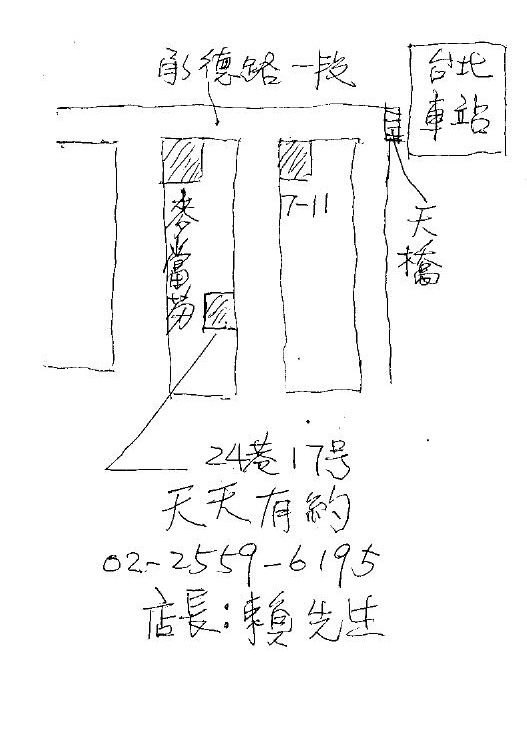 承德路一段
台北
車站
7-11
天橋
麥當勞
24巷17号
天天有約
02-2559-6195
店長:賴先生